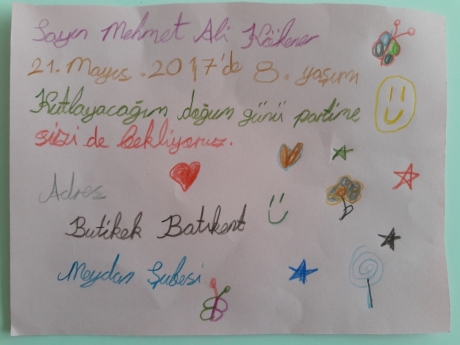 Sayın Mehmet Ali Kökener
21. Mayıs. 2017'de 8. yaşımı
Kutlayacağım doğum günü partime
sizi de bekliyoruz.
Adres
Butikek Batıkent
Meydan Şubesi